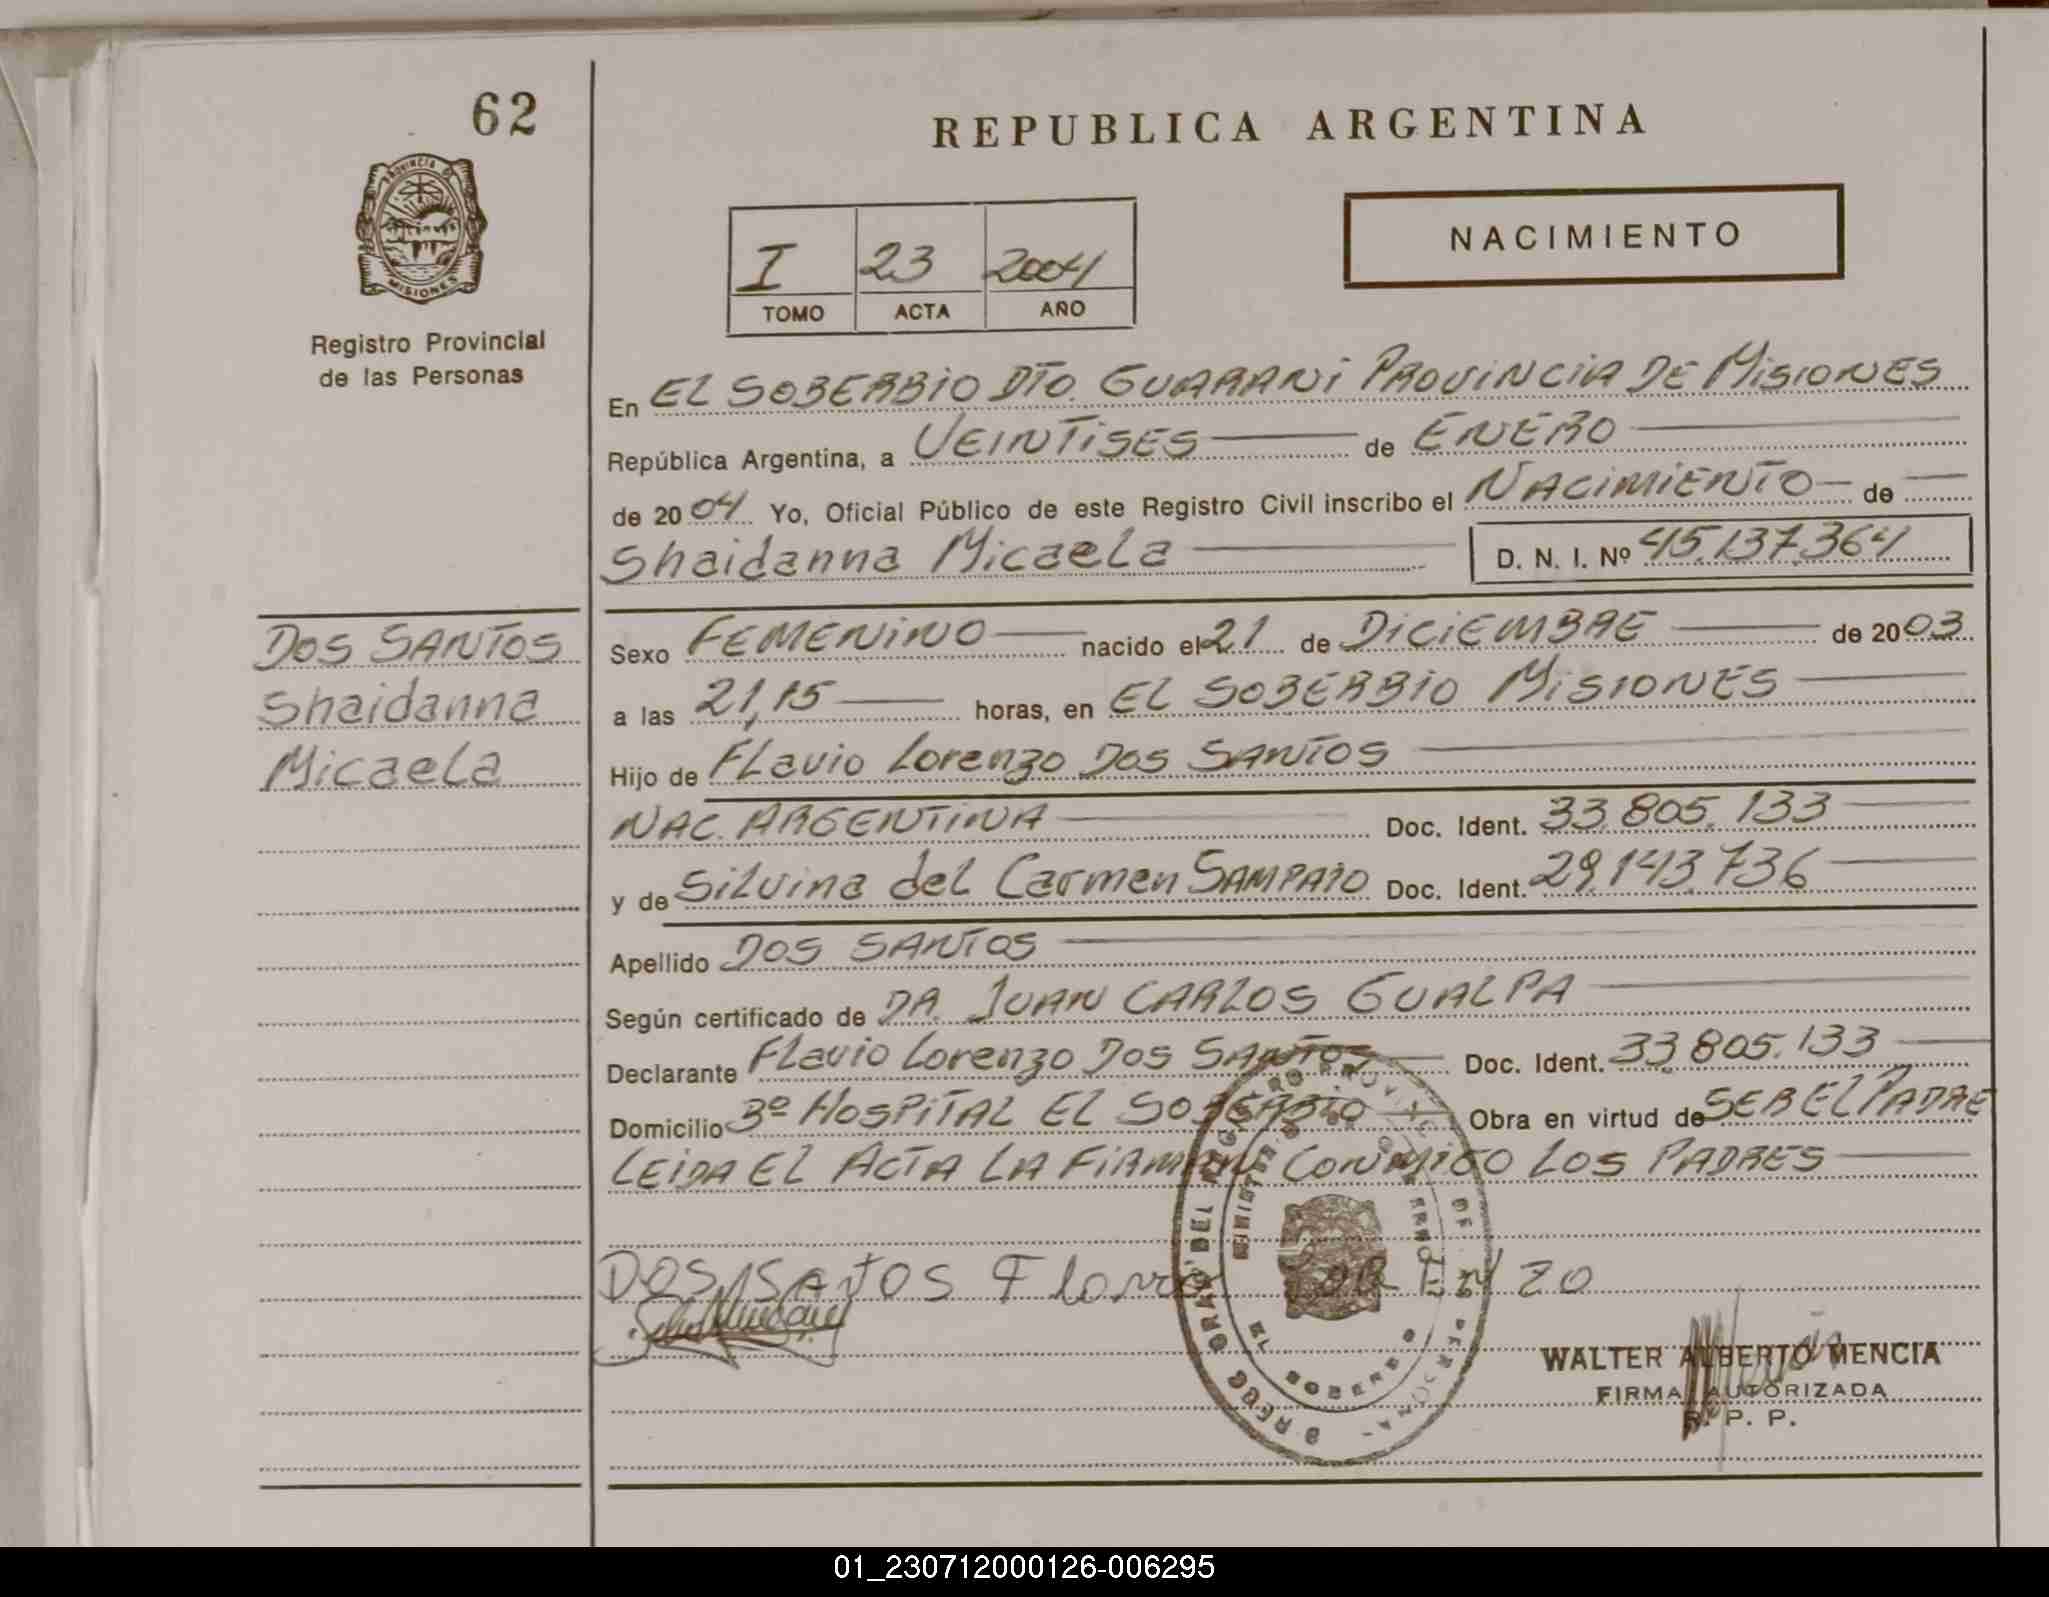 62
REPUBLICA ARGENTINA
PROVINCIA DE
MISIONES
Registro Provincial
de las Personas
I 23 2004
TOMO ACTA AÑO
NACIMIENTO
En EL SOBERBIO DTO. GUARANI PROVINCIA DE MISIONES
República Argentina, a VEINTISES de ENERO
de 2004 Yo, Oficial Público de este Registro Civil inscribo el NACIMIENTO de
Shaidanna Micaela D. N. I. Nº 45.137.364
DOS SANTOS
Shaidanna
Micaela
Sexo FEMENINO nacido el 21 de DICIEMBRE de 2003
a las 21,15 horas, en EL SOBERBIO MISIONES
Hijo de Flavio Lorenzo DOS SANTOS
NAC. ARGENTINA Doc. Ident. 33.805.133
y de Silvina del Carmen SAMPAIO Doc. Ident. 29.143.736
Apellido DOS SANTOS
Según certificado de DR. JUAN CARLOS GUALPA
Declarante Flavio Lorenzo DOS SANTOS Doc. Ident. 33.805.133
Domicilio 3º HOSPITAL EL SOBERBIO Obra en virtud de SER EL PADRE
LEIDA EL ACTA LA FIRMAN CONMIGO LOS PADRES
DOS SANTOS
WALTER ALBERTO MENCIA
FIRMA AUTORIZADA
R. P. P.
01_230712000126-006295